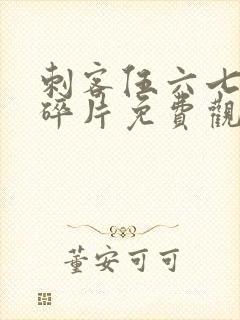 刺客伍六七
碎片免費觀
董安可可